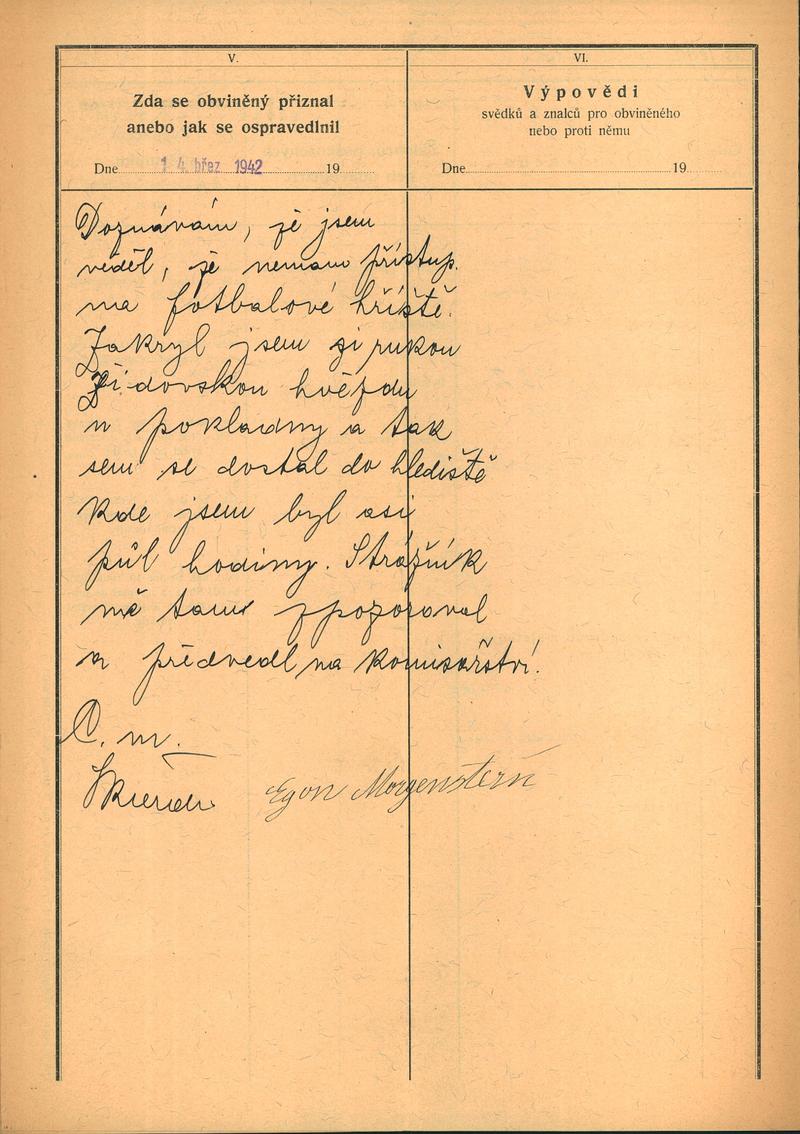 V.
Zda se obviněný přiznal
anebo jak se ospravedlnil
Dne 14. břez 1942 19
VI.
Výpovědi
svědků a znalců pro obviněného
nebo proti němu
Dne 19
Doznávám, že jsem
věděl, že nemam přístup.
na fotbalové hřiště.
Zakryl jsem si rukou
židovskou hvězdu
u pokladny a tak
sem se dostal do hlediště
kde jsem byl asi
půl hodiny. Strážník
mě tam zpozoroval
a předvedl na komisařství.
C. m.
Egon Morgenstern